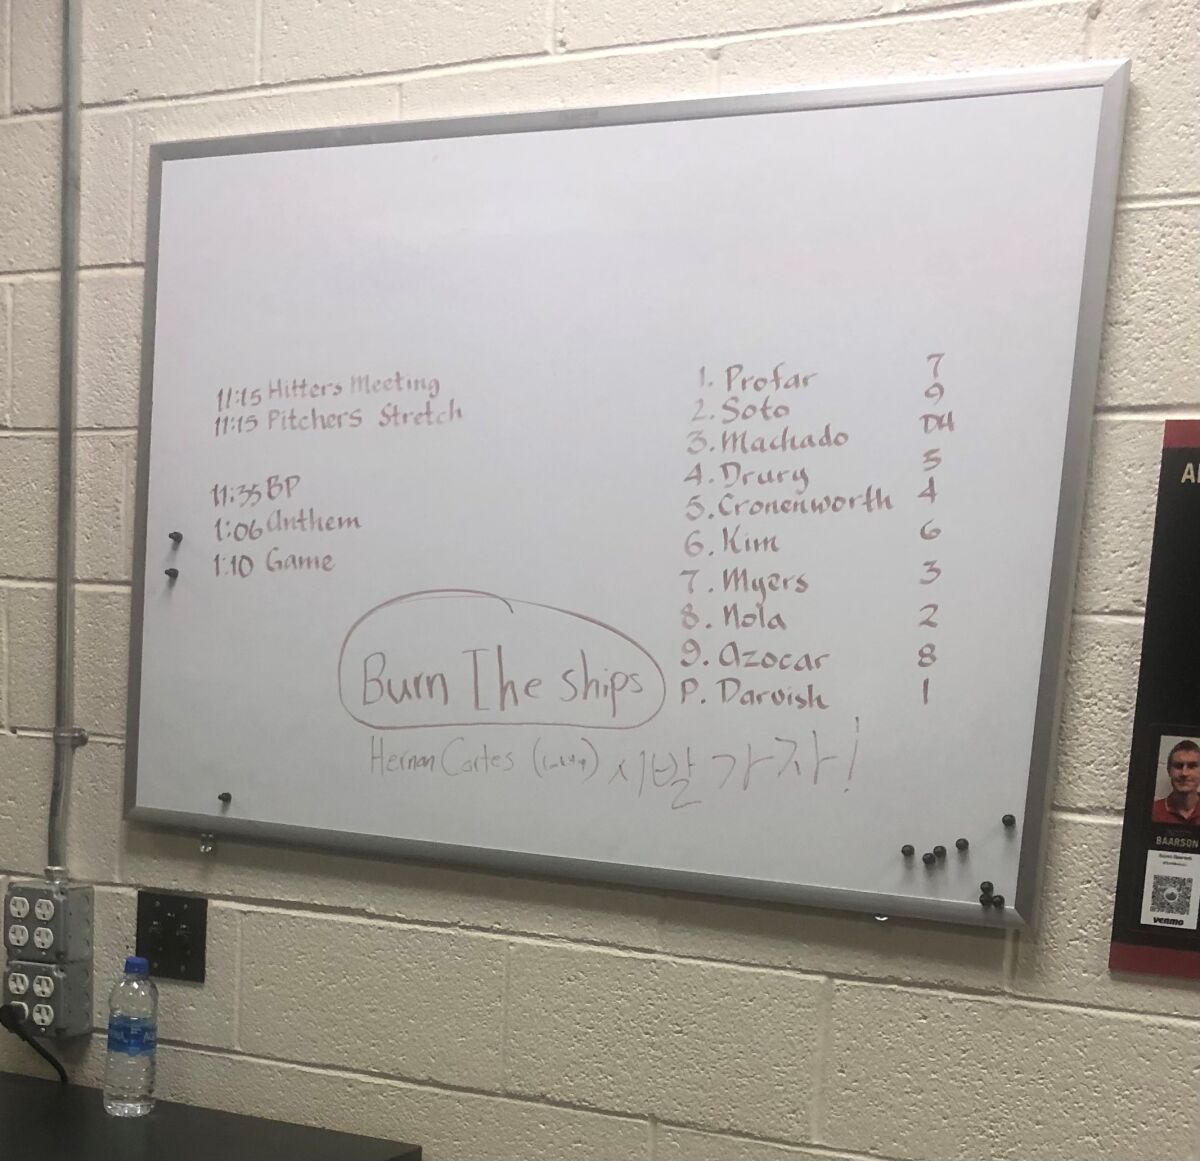 11:15 Hitters Meeting
11:15 Pitchers Stretch
11:35 BP
1:06 Anthem
1:10 Game
1. Profar 7
2. Soto 9
3. Machado DH
4. Drury 5
5. Cronenworth 4
6. Kim 6
7. Myers 3
8. Nola 2
9. Azocar 8
P. Darvish 1
Burn The ships
Hernan Cortes 시발 가자!
BAARSON
venmo